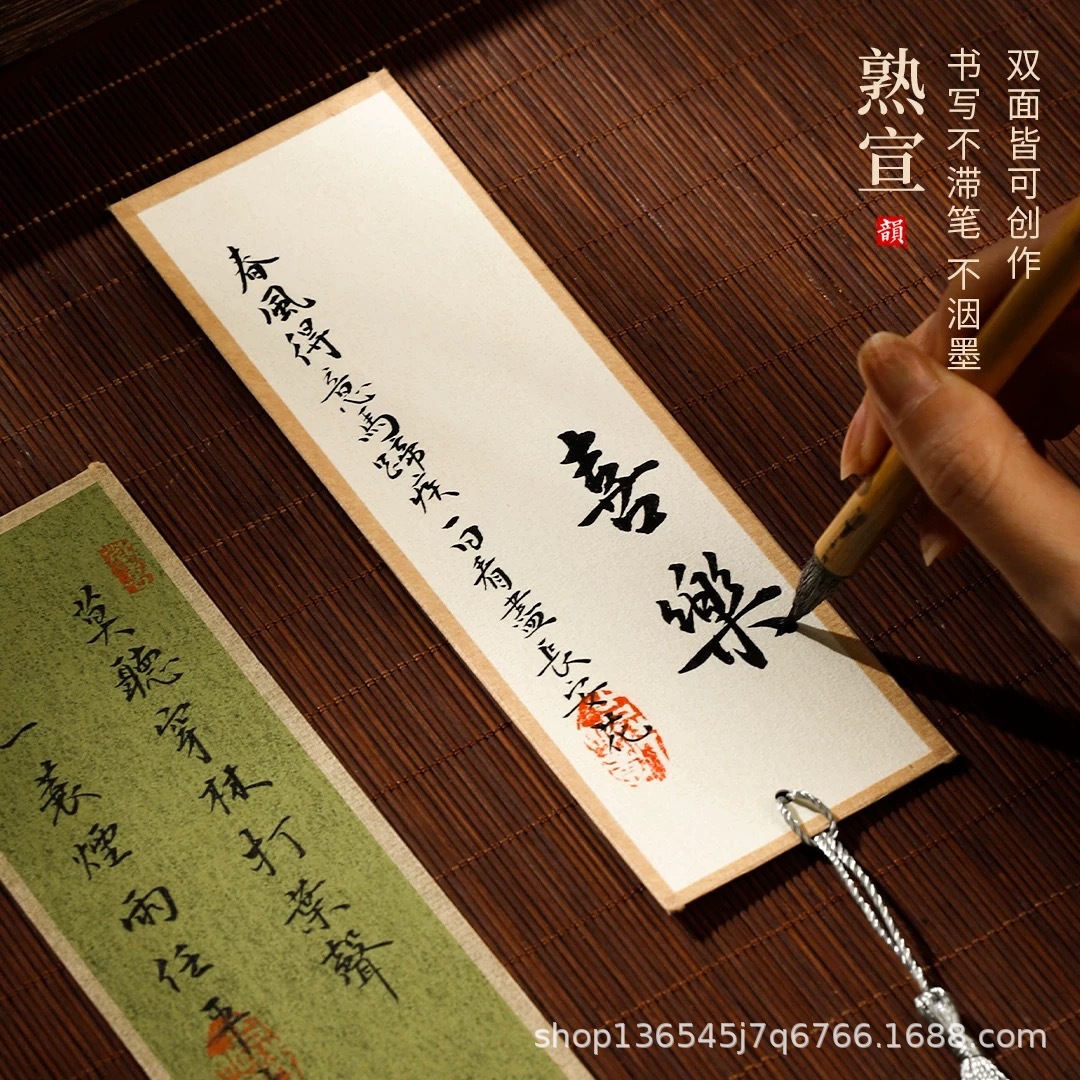 双面皆可创作
书写不滞笔 不洇墨
熟宣
韻
喜樂
春風得意馬蹄疾一日看盡長安花
莫聽穿林打葉聲
一蓑煙雨任平
shop136545j7q6766.1688.com